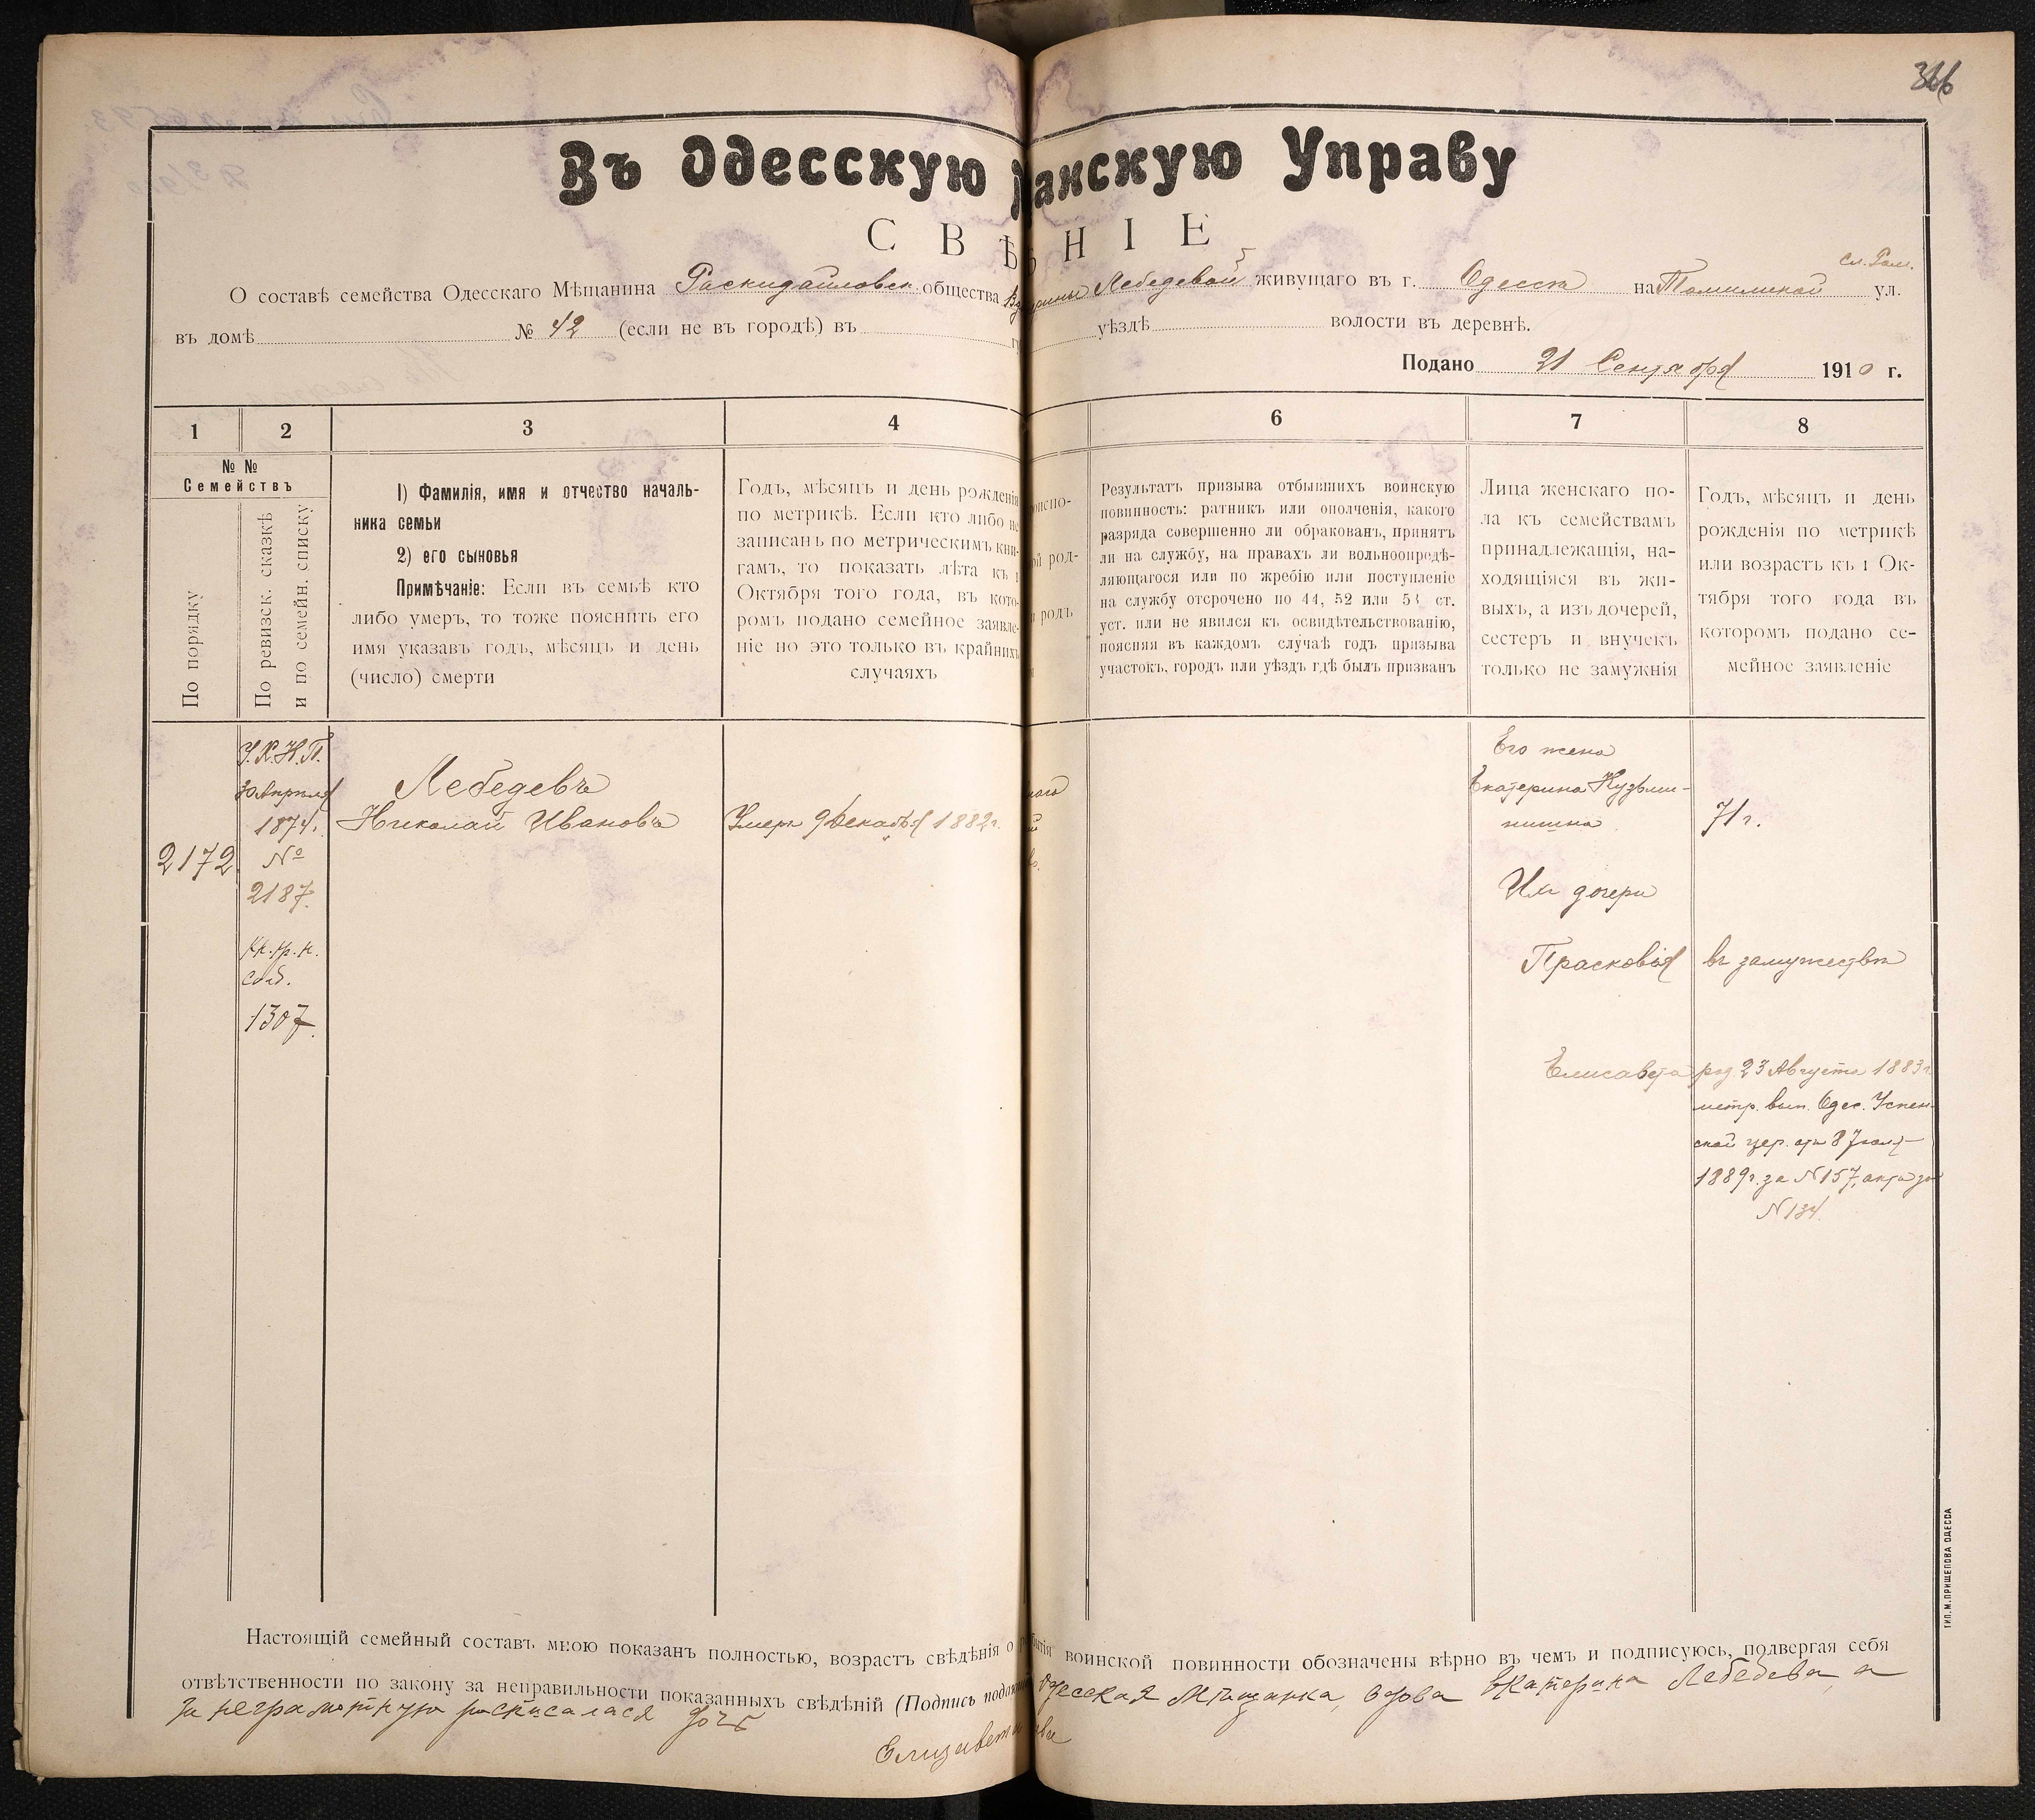 366
Въ Одесскую анскую Управу
СВѢ НІЕ
О составѣ семейства Одесскаго Мѣщанина Раскидайловск. общества Лебедевой живущаго въ г. Одесса на ул.
въ домѣ № 42 (если не въ городѣ) въ уѣздѣ волости въ деревнѣ.
Подано 21 Сентября 1910 г.
1 2 3 4 6 7 8
№ №
Семействъ
По порядку
По ревизск. сказкѣ
и по семейн. списку
1) Фамилія, имя и отчество началь-
ника семьи
2) его сыновья
Примѣчаніе: Если въ семьѣ кто
либо умеръ, то тоже пояснить его
имя указавъ годъ, мѣсяцъ и день
(число) смерти
Годъ, мѣсяцъ и день рожденія
по метрикѣ. Если кто либо не
записанъ по метрическимъ кни-
гамъ, то показать лѣта къ 1
Октября того года, въ кото-
ромъ подано семейное заявле-
ніе но это только въ крайнихъ
случаяхъ
Результатъ призыва отбывшихъ воинскую
повинность: ратникъ или ополченія, какого
разряда совершенно ли обракованъ, принятъ
ли на службу, на правахъ ли вольноопредѣ-
ляющагося или по жребію или поступленіе
на службу отсрочено по 44, 52 или 53 ст.
уст. или не явился къ освидѣтельствованію,
поясняя въ каждомъ случаѣ годъ призыва
участокъ, городъ или уѣздъ гдѣ былъ призванъ
Лица женскаго по-
ла къ семействамъ
принадлежащія, на-
ходящіяся въ жи-
выхъ, а изъ дочерей,
сестеръ и внучекъ
только не замужнія
Годъ, мѣсяцъ и день
рожденія по метрикѣ
или возрастъ къ 1 Ок-
тября того года въ
которомъ подано се-
мейное заявленіе
2172
У.К.Н.П.
30 Апрѣля
1874.
№
2187.
1307.
Лебедевъ
Николай Ивановъ
Умеръ 9 Декабря 1882г.
Его жена
Екатерина Кузьми-
нишна
71 г.
Их дочери
Прасковья въ замужествѣ
Елисавета род. 23 Августа 1883г.
метр. вып. Одес. Успен-
ской цер. отъ 8 Іюля
1889г. за N157, актъ за
N134.
Настоящій семейный составъ мною показанъ полностью, возрастъ свѣдѣнія о воинской повинности обозначены вѣрно въ чемъ и подписуюсь, подвергая себя
отвѣтственности по закону за неправильность показанныхъ свѣдѣній (Подпись Одесская Мѣщанка, вдова Екатерина Лебедева, а
за неграмотную росписалася дочь
Елизавета
ТИП. М. ПРИЩЕПОВА ОДЕССА